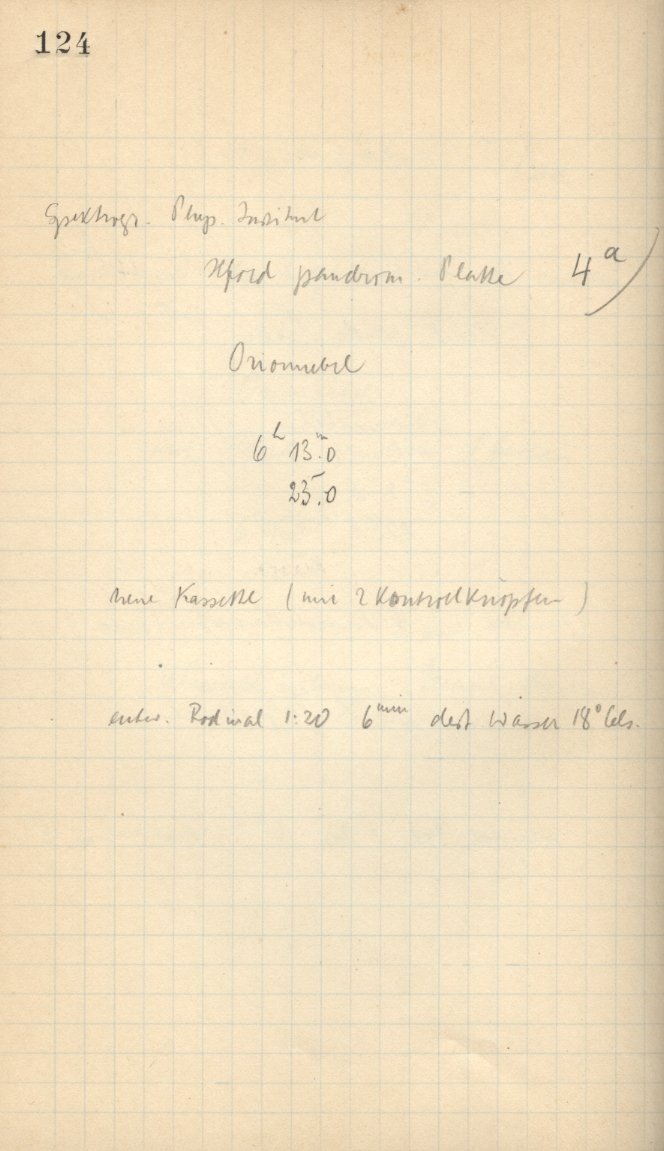 124
Spektrogr. Phys. Institut
Ilford panchrom. Platte 4a)
Orionnebel
6h 13m.0
25.0
neue Kassette (mit 2 Kontrollknöpfen)
entw. Rodinal 1:20 6min dest Wasser 18° Cels.